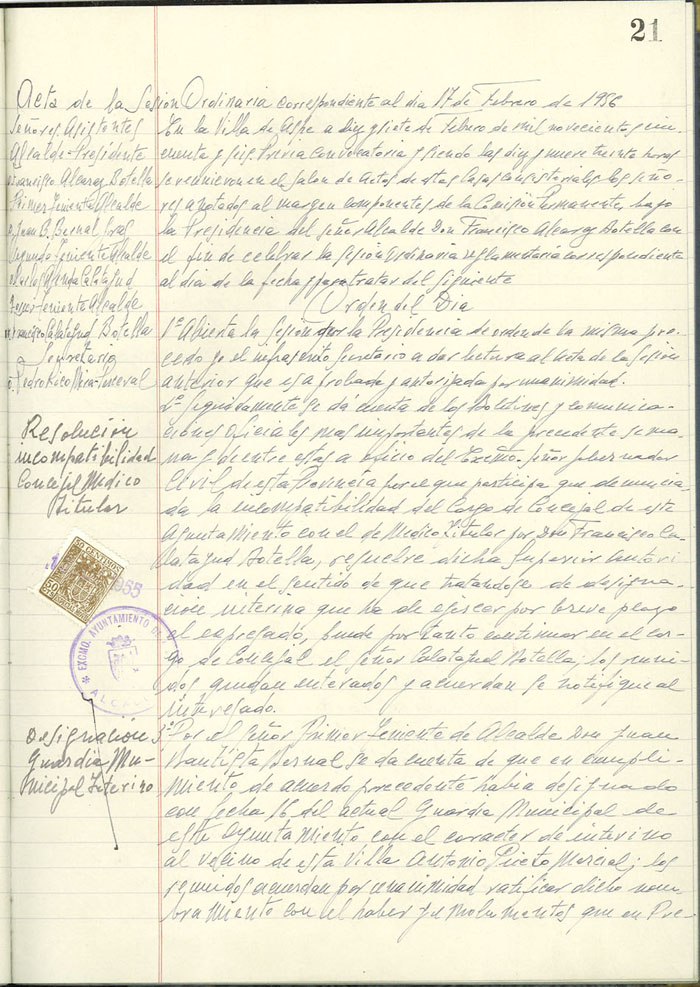 21
Acta de la Sesión Ordinaria correspondiente al dia 17 de Febrero de 1956
Señores Asistentes
Alcalde-Presidente
Francisco Alcaraz Botella
Primer Teniente Alcalde
Juan B. Bernal
Segundo Teniente Alcalde
Calatayud
Teniente Alcalde
Calatayud Botella
Secretario
Pedro Rico Mira-Perceval
En la Villa de Aspe a diez y siete de Febrero de mil novecientos cin-
cuenta y seis. Previa Convocatoria y siendo las diez y nueve treinta horas
se reunieron en el Salon de Actos de estas Casas Consistoriales los seño-
res anotados al margen componentes de la Comisión Permanente, bajo
la Presidencia del Señor Alcalde Don Francisco Alcaraz Botella con
el fin de celebrar la Sesión Ordinaria reglamentaria correspondiente
al dia de la fecha y para tratar del siguiente
Orden del Dia
1º Abierta la Sesión por la Presidencia de orden de la misma pro-
cedo yo el infrascrito Secretario a dar lectura al acta de la Sesión
anterior que es aprobada y autorizada por unanimidad.
Resolución
incompatibilidad
Concejal Medico
Titular
2º Seguidamente se dá cuenta de los Boletines y comunica-
ciones oficiales mas importantes de la precedente sema-
na y entre estas a oficio del Excmo. Señor Gobernador
Civil de esta Provincia por el que participa que denuncia-
da la incompatibilidad del Cargo de Concejal de este
Ayuntamiento con el de Medico Titular por Don Francisco Ca-
latayud Botella, resuelve dicha Superior Autori-
dad en el sentido de que tratandose de designa-
cion interina que ha de ejercer por breve plazo
el expresado, puede por tanto continuar en el car-
go de Concejal el señor Calatayud Botella; los reuni-
dos quedan enterados y acuerdan se notifique al
interesado.
50 CENTIMOS
1955
EXCMO. AYUNTAMIENTO DE
ALCALDIA
Designación
Guardia Mu-
nicipal Interino
3º Por el Señor Primer Teniente de Alcalde Don Juan
Bautista Bernal se da cuenta de que en cumpli-
miento de acuerdo precedente habia designado
con fecha 16 del actual Guardia Municipal de
este Ayuntamiento con el caracter de interino
al vecino de esta Villa Antonio Prieto Marcial; los
reunidos acuerdan por unanimidad ratificar dicho nom-
bramiento con el haber y emolumentos que en Pre-